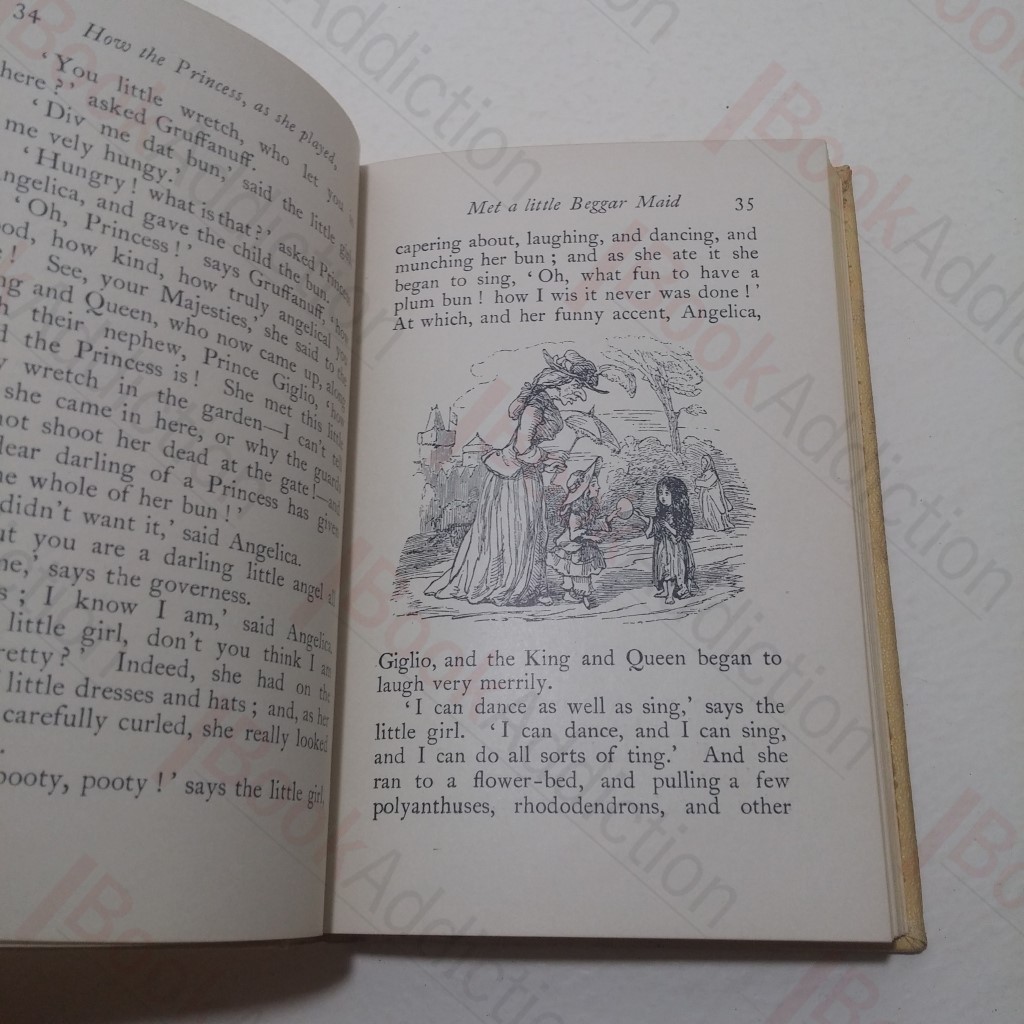 34
How the Princess, as she played,
‘You little wretch, who let you
here?’ asked Gruffanuff.
‘Div me dat bun,’ said the little girl,
me vely hungy.’
‘Hungry! what is that?’ asked Princess
Angelica, and gave the child the bun.
‘Oh, Princess!’ says Gruffanuff, ‘how
how kind, how truly angelical you
! See, your Majesties,’ she said to the
and Queen, who now came up, along
their nephew, Prince Giglio, ‘how
the Princess is! She met this little
wretch in the garden—I can't tell
she came in here, or why the guards
not shoot her dead at the gate!—and
darling of a Princess has given
whole of her bun!’
didn't want it,’ said Angelica.
you are a darling little angel all
says the governess.
; I know I am,’ said Angelica.
little girl, don't you think I am
Indeed, she had on the
little dresses and hats; and, as her
carefully curled, she really looked
pooty, pooty!’ says the little girl,
Met a little Beggar Maid 35
capering about, laughing, and dancing, and
munching her bun; and as she ate it she
began to sing, ‘Oh, what fun to have a
plum bun! how I wis it never was done!’
At which, and her funny accent, Angelica,
Giglio, and the King and Queen began to
laugh very merrily.
‘I can dance as well as sing,’ says the
little girl. ‘I can dance, and I can sing,
and I can do all sorts of ting.’ And she
ran to a flower-bed, and pulling a few
polyanthuses, rhododendrons, and other
BookAddiction